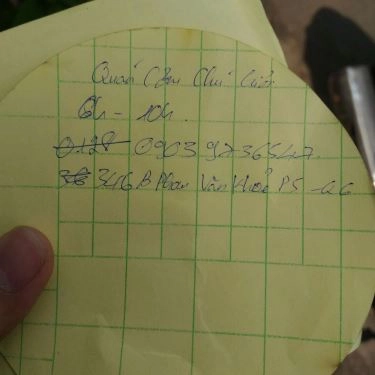 Quán Cơm Chú Cuội
6h - 10h.
0903 9736547.
346 B Phan Văn Khoẻ P5 - Q6